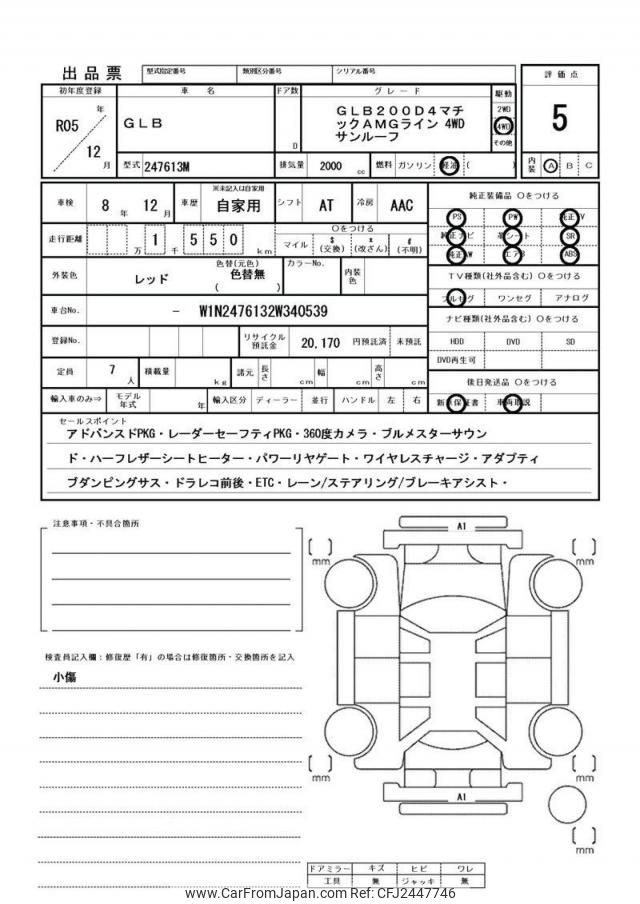 出品票 型式指定番号 類別区分番号 シリアル番号
評価点
初年度登録 車名 ドア数 グレード 駆動
R05 年 12 月
GLB
D
GLB200D4マチ
ックAMGライン 4WD
サンルーフ
2WD
4WD
その他
5
型式 247613M 排気量 2000 cc 燃料 ガソリン 軽油 ( )
内装 A B C
車検 8 年 12 月 車歴 ※未記入は自家用 自家用 シフト AT 冷房 AAC
純正装備品 〇をつける
PS PW 純正TV
純正ナビ 革シート SR
純正AW エアB ABS
走行距離 万 1 千 550 km
〇をつける
マイル $ (交換) x (改ざん) # (不明)
外装色 レッド 色替(元色) 色替無 ( ) カラーNo. 内装色
TV種類(社外品含む) 〇をつける
フルセグ ワンセグ アナログ
車台No. − W1N2476132W340539
ナビ種類(社外品含む) 〇をつける
HDD DVD SD
DVD再生可
登録No. リサイクル預託金 20,170 円預託済 未預託
定員 7 人 積載量 kg 諸元 長さ cm 幅 cm 高さ cm
後日発送品 〇をつける
新車保証書 車両取説
輸入車のみ⇒ モデル年式 年 輸入区分 ディーラー 並行 ハンドル 左 右
セールスポイント
アドバンスドPKG・レーダーセーフティPKG・360度カメラ・ブルメスターサウン
ド・ハーフレザーシートヒーター・パワーリヤゲート・ワイヤレスチャージ・アダプティ
ブダンピングサス・ドラレコ前後・ETC・レーン/ステアリング/ブレーキアシスト・
注意事項・不具合箇所
A1
mm
mm
検査員記入欄：修復歴「有」の場合は修復箇所・交換箇所を記入
小傷
mm
mm
A1
mm
ドアミラー キズ ヒビ ワレ
工具 無 ジャッキ 無
www.CarFromJapan.com Ref: CFJ2447746